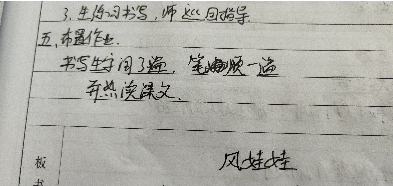 3、生练习书写，师巡回指导
五、布置作业
书写生字词3遍，笔顺一遍
并熟读课文、
板
书
风娃娃